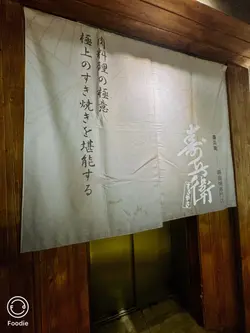 肉料理の極意
極上のすき焼きを堪能する
寿兵衛
Foodie